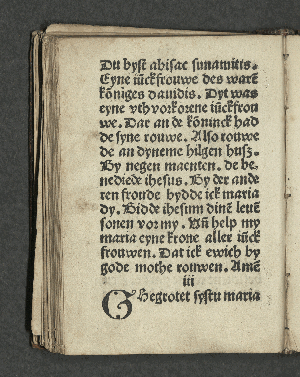 Du byst abisac sunamitis.
Eyne iūckfrouwe des warē
kōniges dauidis. Dyt was
eyne vthvorkorene iūckfrou
we. Dar an de kōninck had
de syne rouwe. Also rouwe
de an dyneme hilgen husz.
By negen maenten. de be-
nediede ihesus. By der ande
ren froude bydde ick maria
dy. Bidde ihesum dinē leuē
sonen vor my. Vñ help my
maria eyne krone aller iūck
frouwen. Dat ick ewich by
gode mothe rouwen. Amē
iii
Ghegrotet systu maria